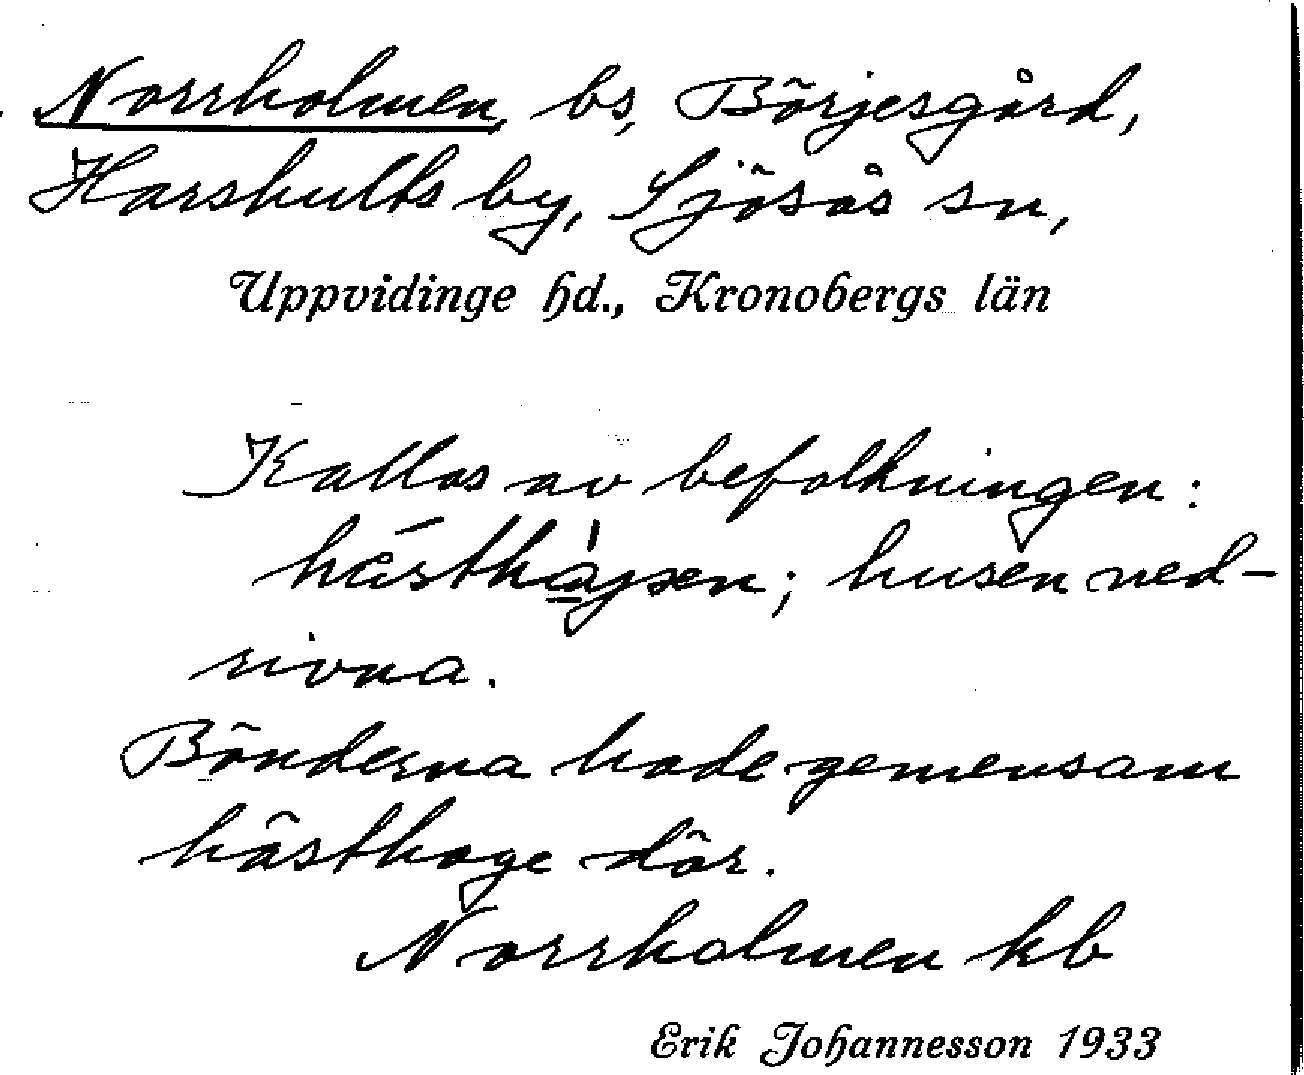 Norrholmen, bs, Börjesgård,
Harshults by, Sjösås sn,
Uppvidinge hd., Kronobergs län
Kallas av befolkningen:
husen ned-
rivna.
Bönderna hade gemensam
hästhage där.
Norrholmen kb
Erik Johannesson 1933